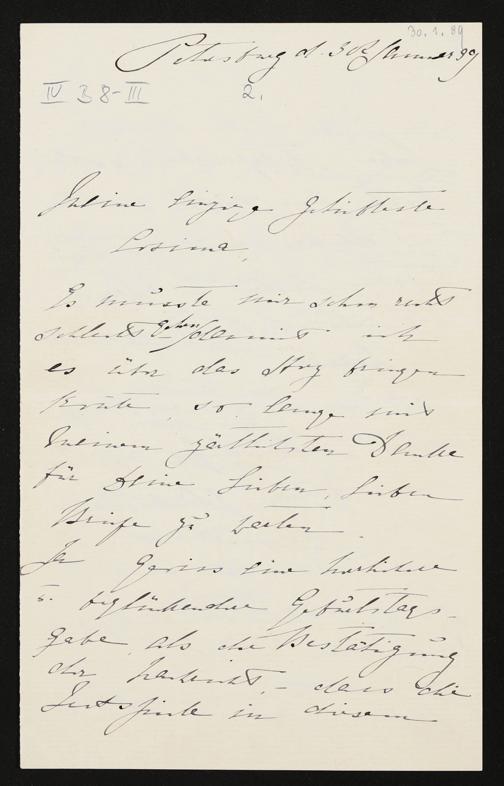 30.1.89
Petersburg d. 30 Januar 89
IV B 8-III
2.
Meine einzige geliebteste
Cosima,
Es müsste mir schon recht
schlecht gehen, damit ich
es über das Herz bringen
könnte, so lange mit
meinem zärtlichsten Danke
für Deine lieben, lieben
Briefe zu warten.
Ja gewiss eine herrlichere
u. beglückendere Geburtstags-
gabe, als die Bestätigung
der Nachricht, - dass die
Festspiele in diesem